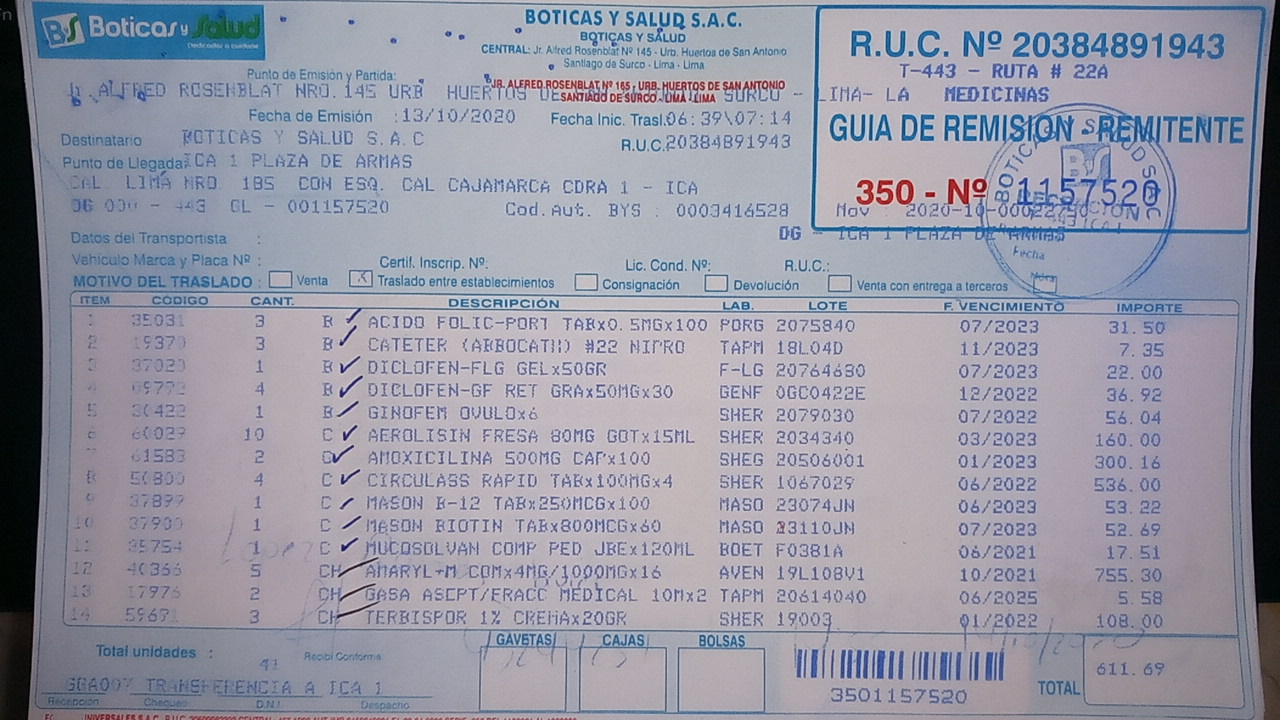 Boticas y Salud
Dedicados a cuidarte
BOTICAS Y SALUD S.A.C.
BOTICAS Y SALUD
CENTRAL: Jr. Alfred Rosenblat Nº 145 - Urb. Huertos de San Antonio
Santiago de Surco - Lima - Lima
JR. ALFRED ROSENBLAT Nº 165 - URB. HUERTOS DE SAN ANTONIO
SANTIAGO DE SURCO - LIMA - LIMA
R.U.C. Nº 20384891943
T-443 - RUTA # 22A
MEDICINAS
GUIA DE REMISION - REMITENTE
350 - Nº 1157520
Mov : 2020-10-00022790
DG - ICA 1 PLAZA DE ARMAS
Punto de Emisión y Partida:
Jr. ALFRED ROSENBLAT NRO. 145 URB HUERTOS DE SURCO - LIMA- LA
Fecha de Emisión :13/10/2020 Fecha Inic. Trasl.06:39\07:14
Destinatario BOTICAS Y SALUD S.A.C R.U.C.20384891943
Punto de Llegada: ICA 1 PLAZA DE ARMAS
CAL. LIMA NRO. 185 CON ESQ. CAL CAJAMARCA CDRA 1 - ICA
DG 000 - 443 GL - 001157520 Cod.Aut. BYS : 0003416528
Datos del Transportista :
Vehiculo Marca y Placa Nº : Certif. Inscrip. Nº: Lic. Cond. Nº: R.U.C.:
MOTIVO DEL TRASLADO : Venta X Traslado entre establecimientos Consignación Devolución Venta con entrega a terceros
ITEM CÓDIGO CANT. DESCRIPCIÓN LAB. LOTE F. VENCIMIENTO IMPORTE
1 35031 3 B ACIDO FOLIC-PORT TABx0.5MGx100 PORG 2075840 07/2023 31.50
2 19370 3 B CATETER (ABBOCATH) #22 NIPRO TAPM 18L04D 11/2023 7.35
3 37020 1 B DICLOFEN-FLG GELx50GR F-LG 20764680 07/2023 22.00
4 09772 4 B DICLOFEN-GF RET GRAx50MGx30 GENF 0GC0422E 12/2022 36.92
5 30422 1 B GINOFEM OVULOx6 SHER 2079030 07/2022 56.04
6 60029 10 C AEROLISIN FRESA 80MG GOTx15ML SHER 2034340 03/2023 160.00
7 61583 2 C AMOXICILINA 500MG CAPx100 SHEG 20506001 01/2023 300.16
8 50800 4 C CIRCULASS RAPID TABx100MGx4 SHER 1067029 06/2022 536.00
9 37899 1 C MASON B-12 TABx250MCGx100 MASO 23074JN 06/2023 53.22
10 37900 1 C MASON BIOTIN TABx800MCGx60 MASO 23110JN 07/2023 52.69
11 35754 1 C MUCOSOLVAN COMP PED JBEx120ML BOET F0381A 06/2021 17.51
12 40366 5 CH AMARYL-M COMx4MG/1000MGx16 AVEN 19L108V1 10/2021 755.30
13 17976 2 CH GASA ASEPT/FRACC MEDICAL 10Mx2 TAPM 20614040 06/2025 5.58
14 59671 3 CH TERBISPOR 1% CREMAx20GR SHER 19003 01/2022 108.00
Total unidades : 41 Recibi Conforme GAVETAS CAJAS BOLSAS
3501157520
TOTAL 611.69
GGA007 TRANSFERENCIA A ICA 1
Recepción Chequeo D.N.I. Despacho